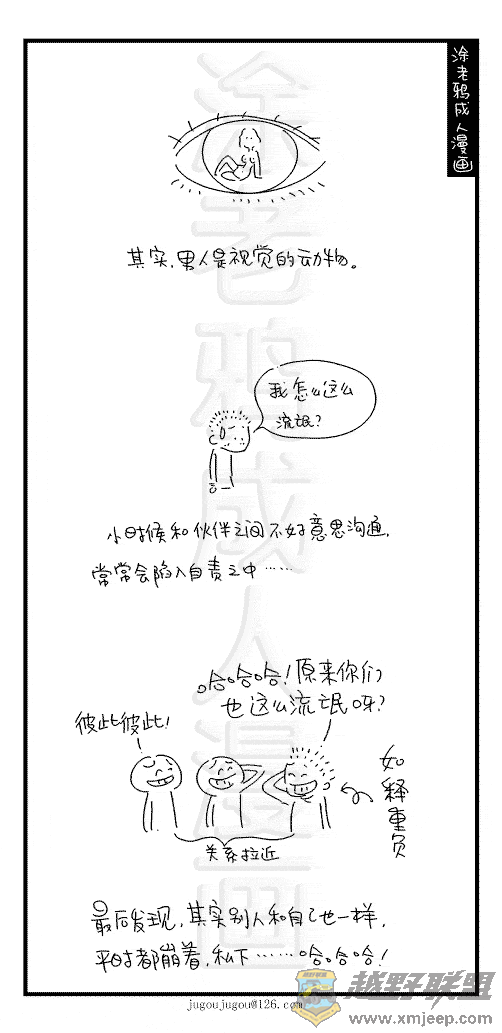 涂老鸦成人漫画
其实,男人是视觉的动物。
我怎么这么
流氓?
小时候和伙伴之间不好意思沟通,
常常会陷入自责之中……
哈哈哈!原来你们
也这么流氓呀?
彼此彼此!
如释重负
关系拉近
最后发现,其实别人和自己也一样,
平时都崩着,私下……哈哈哈!
jugoujugou@126.com
越野联盟
www.xmjeep.com
涂老鸦成人漫画